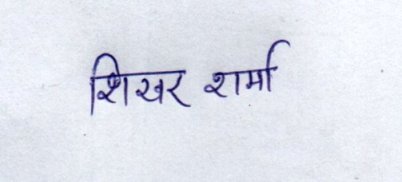 शिखर शर्मा